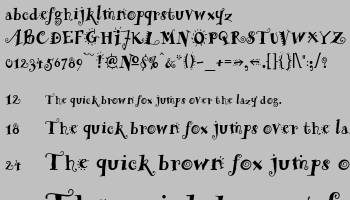 abcdefghijklmnopqrstuvwxyz
ABCDEFGHIJKLMNOPQRSTUVWXYZ
0123456789
12 The quick brown fox jumps over the lazy dog.
18 The quick brown fox jumps over the la
24 The quick brown fox jumps o